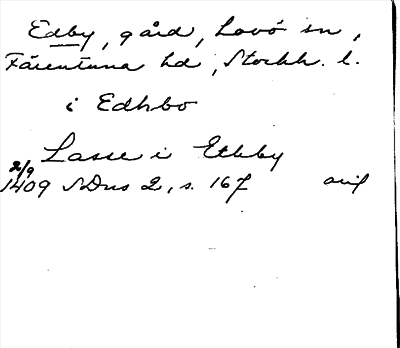 Edby, gård, Lovö sn,
Färentuna hd, Stockh. l.
i Edhbo
Lasse i Ethby
2/9
1409 SDns 2, s. 167 avif